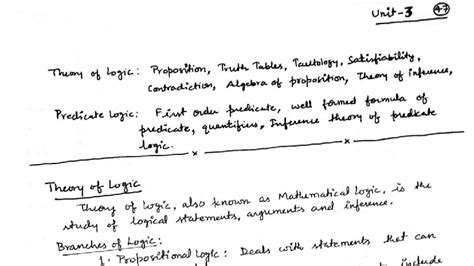 Unit-3 47
Theory of Logic: Proposition, Truth Tables, Tautology, Satisfiability,
Contradiction, Algebra of proposition, Theory of inference,
Predicate Logic: First order predicate, well formed formula of
predicate, quantifiers, Inference theory of predicate
logic.
Theory of Logic
Theory of logic, also known as Mathematical logic, is the
study of logical statements, arguments and inference.
Branches of Logic:
1. Propositional logic: Deals with statements that can
to include